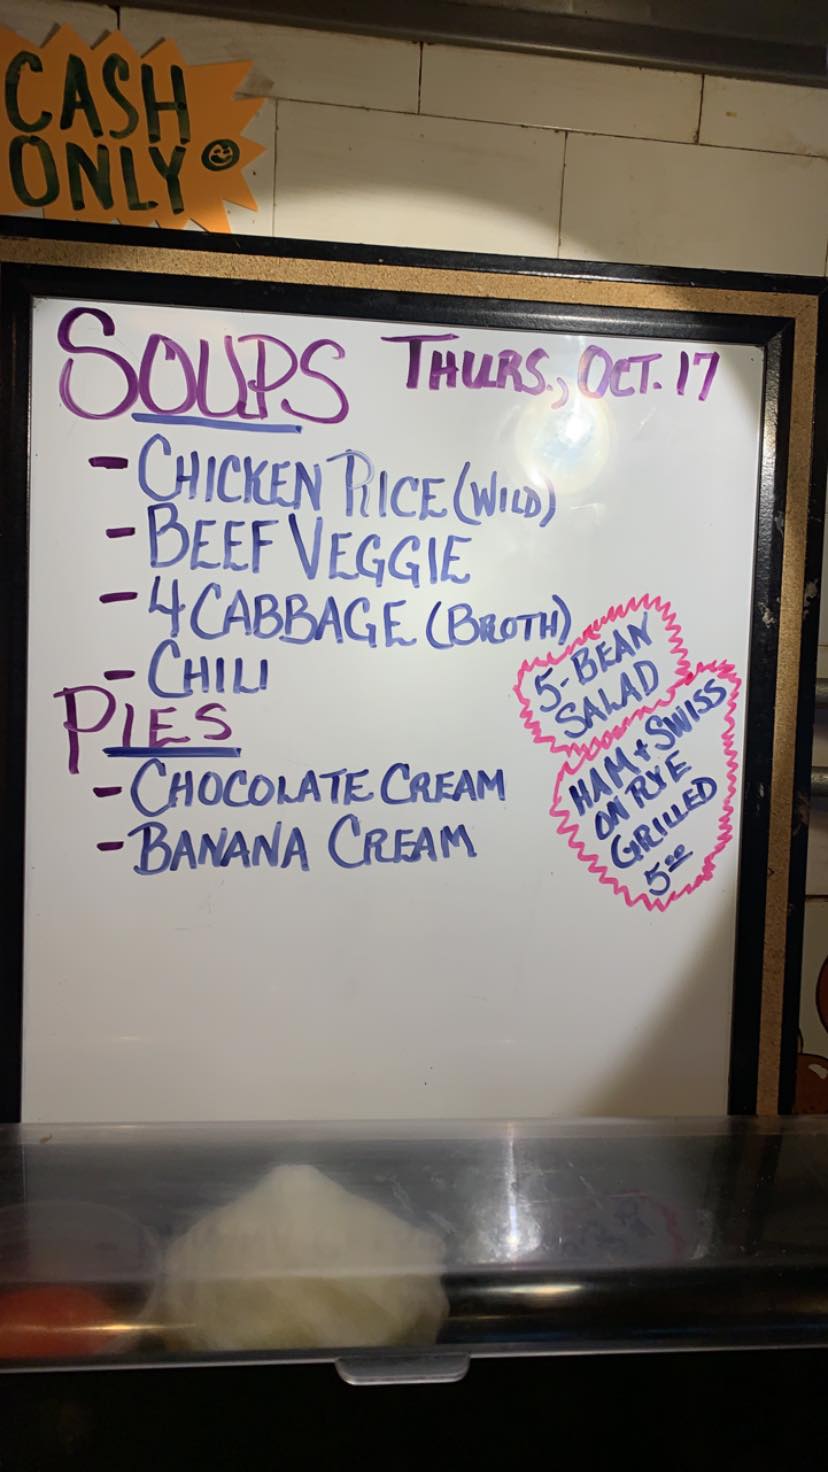 CASH
ONLY
SOUPS THURS., OCT. 17
- CHICKEN RICE (WILD)
- BEEF VEGGIE
- 4 CABBAGE (BROTH)
- CHILI
5-BEAN
SALAD
PIES
- CHOCOLATE CREAM
- BANANA CREAM
HAM + SWISS
ON RYE
GRILLED
5.00